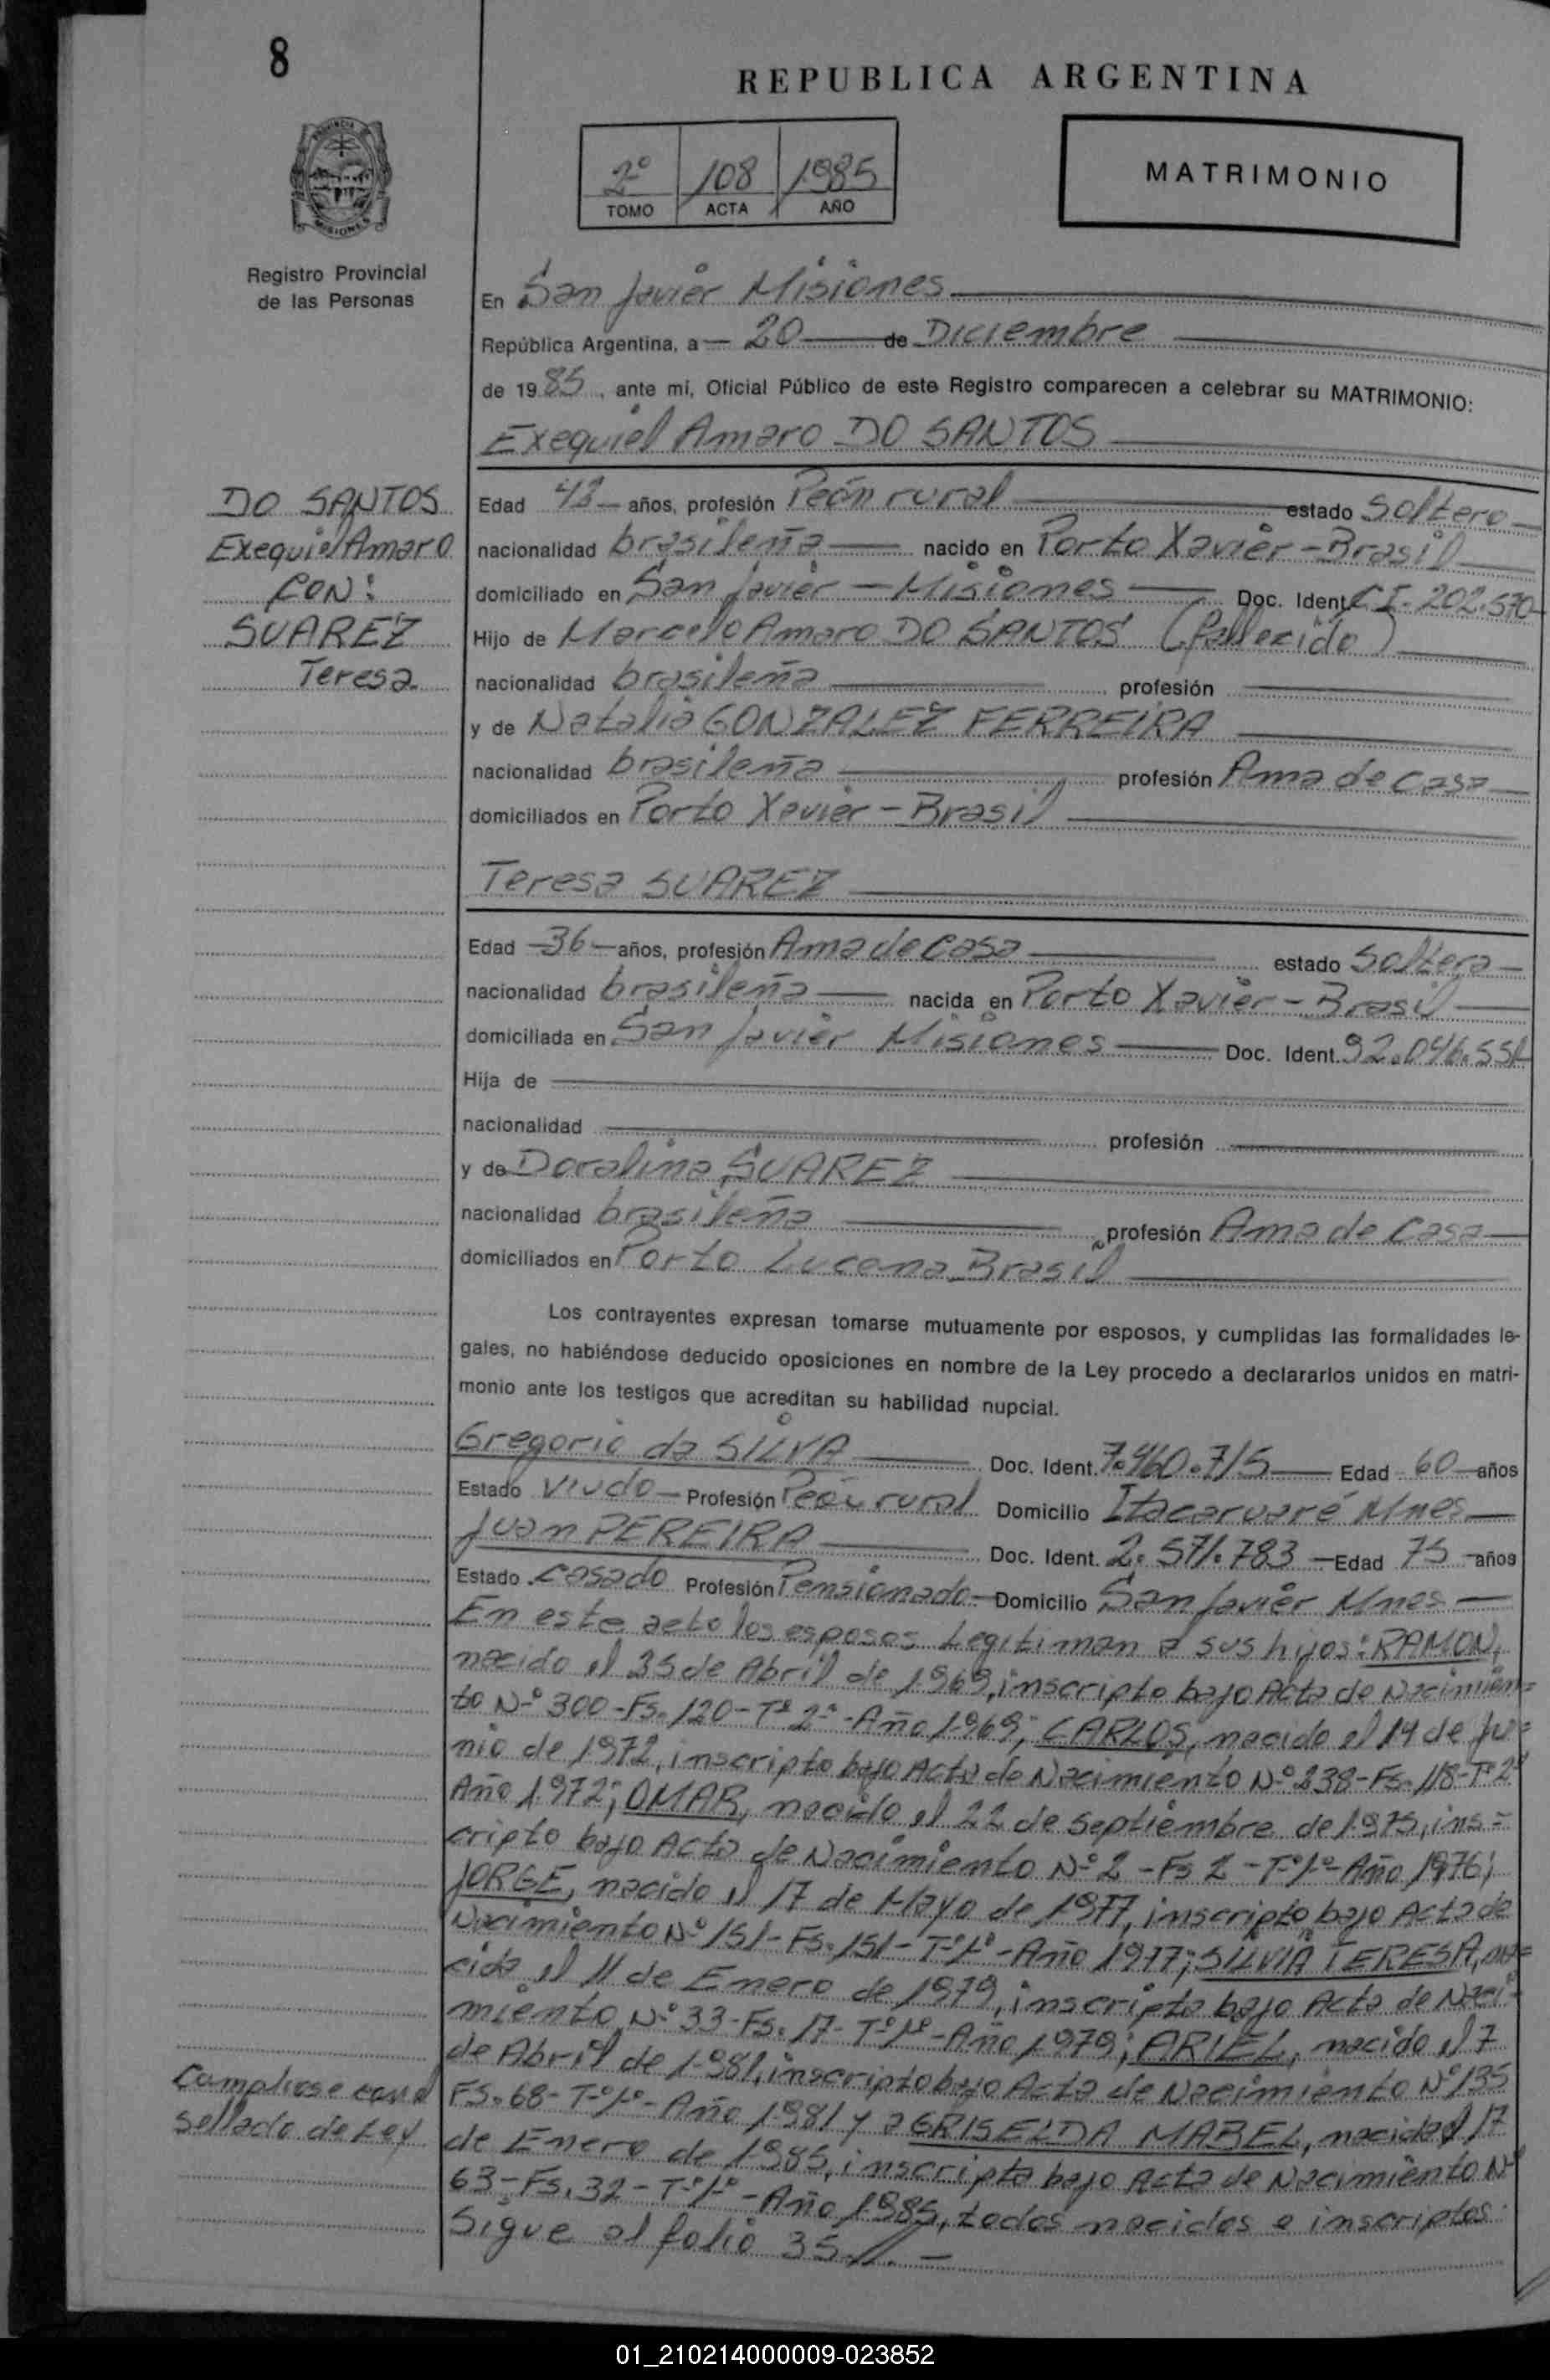 8
REPUBLICA ARGENTINA
2º 108 1985
TOMO ACTA AÑO
MATRIMONIO
PROVINCIA DE
MISIONES
Registro Provincial
de las Personas
En San Javier Misiones
República Argentina, a 20 de Diciembre
de 1985, ante mí, Oficial Público de este Registro comparecen a celebrar su MATRIMONIO:
Exequiel Amaro DO SANTOS
DO SANTOS
Exequiel Amaro
CON:
SUAREZ
Teresa
Edad años, profesión Peón rural estado Soltero
nacionalidad brasileña nacido en Porto Xavier - Brasil
domiciliado en San Javier - Misiones Doc. Ident. C.I. 202.570
Hijo de Marcelo Amaro DO SANTOS (fallecido)
nacionalidad brasileña profesión
y de Natalia GONZALEZ FERREIRA
nacionalidad brasileña profesión Ama de casa
domiciliados en Porto Xavier - Brasil
Teresa SUAREZ
Edad 36 años, profesión Ama de casa estado Soltera
nacionalidad brasileña nacida en Porto Xavier - Brasil
domiciliada en San Javier Misiones Doc. Ident. 92.046.551
Hija de
nacionalidad profesión
y de Doralina SUAREZ
nacionalidad brasileña profesión Ama de casa
domiciliados en Porto Lucena Brasil
Los contrayentes expresan tomarse mutuamente por esposos, y cumplidas las formalidades le-
gales, no habiéndose deducido oposiciones en nombre de la Ley procedo a declararlos unidos en matri-
monio ante los testigos que acreditan su habilidad nupcial.
Gregorio da SILVA Doc. Ident. 7.460.715 Edad 60 años
Estado viudo Profesión Peón rural Domicilio Itacaruaré Mnes
Juan PEREIRA Doc. Ident. 2.571.783 Edad 75 años
Estado casado Profesión Pensionado Domicilio San Javier Mnes
En este acto los esposos Legitiman a sus hijos: RAMON,
nacido el de Abril de 1969, inscripto bajo Acta de Nacimien=
to Nº 300-Fs. 120-Tº 2º-Año 1969; CARLOS, nacido el 14 de Ju=
nio de 1972, inscripto bajo Acta de Nacimiento Nº 238-Fs. 118-Tº 2º
Año 1972; OMAR, nacido el 22 de Septiembre de 1975, ins=
cripto bajo Acta de Nacimiento Nº 2-Fs 2-Tº1º-Año 1976;
JORGE, nacido el 17 de Mayo de 1977, inscripto bajo Acta de
Nacimiento Nº 151-Fs. 151-Tº1º-Año 1977; SILVIA TERESA, na=
cida el 11 de Enero de 1979, inscripta bajo Acta de Naci=
miento Nº 33-Fs. 17-Tº1º-Año 1979; ARIEL, nacido el 7
de Abril de 1981, inscripto bajo Acta de Nacimiento Nº 135
Fs. 68-Tº1º-Año 1981 y a GRISELDA MABEL, nacida el 17
de Enero de 1985, inscripta bajo Acta de Nacimiento Nº
63-Fs. 32-Tº1º-Año 1985, todos nacidos e inscriptos
Sigue al folio 35//.-
Camplirse con el
Sellado de Ley
01_210214000009-023852